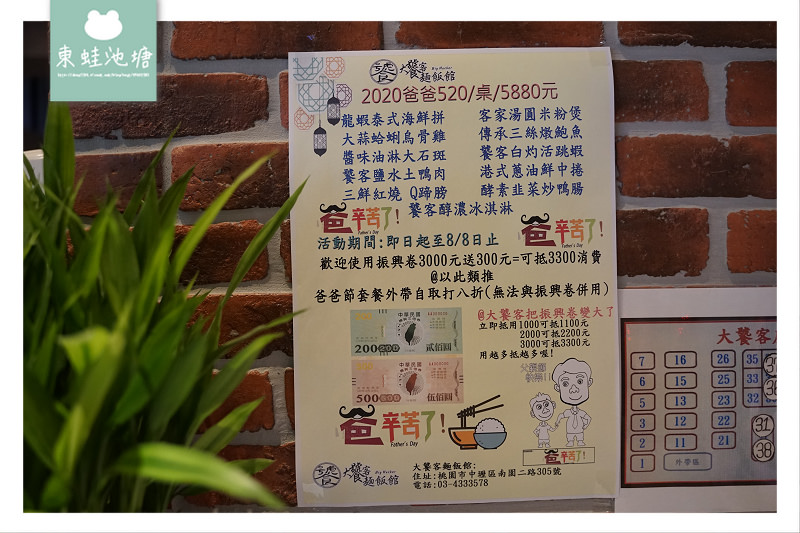 東蛙池塘
饕 大饕客麵飯館
2020爸爸520/桌/5880元
龍蝦泰式海鮮拼
大蒜蛤蜊烏骨雞
醬味油淋大石斑
饕客鹽水土鴨肉
三鮮紅燒 Q蹄膀
客家湯圓米粉煲
傳承三絲燉鮑魚
饕客白灼活跳蝦
港式蔥油鮮中捲
酵素韭菜炒鴨腸
饕客醇濃冰淇淋
爸辛苦了!
Father's Day
爸辛苦了!
Father's Day
活動期間:即日起至8/8日止
歡迎使用振興卷3000元送300元=可抵3300消費
@以此類推
爸爸節套餐外帶自取打八折(無法與振興卷併用)
@大饕客把振興卷變大了
立即抵用1000可抵1100元
2000可抵2200元
3000可抵3300元
用越多抵越多喔!
中華民國
200 200 貳佰元
中華民國
500 500 伍佰元
父親節
快樂!!
爸辛苦了!
Father's Day
爸辛苦了!
饕 大饕客麵飯館
大饕客麵飯館:
住址:桃園市中壢區南園二路305號
電話:03-4333578
大饕客
7 16 26 35 39
6 15 25 33 36
5 13 23 32
3 12 22 31
2 11 21 38
1 外帶區